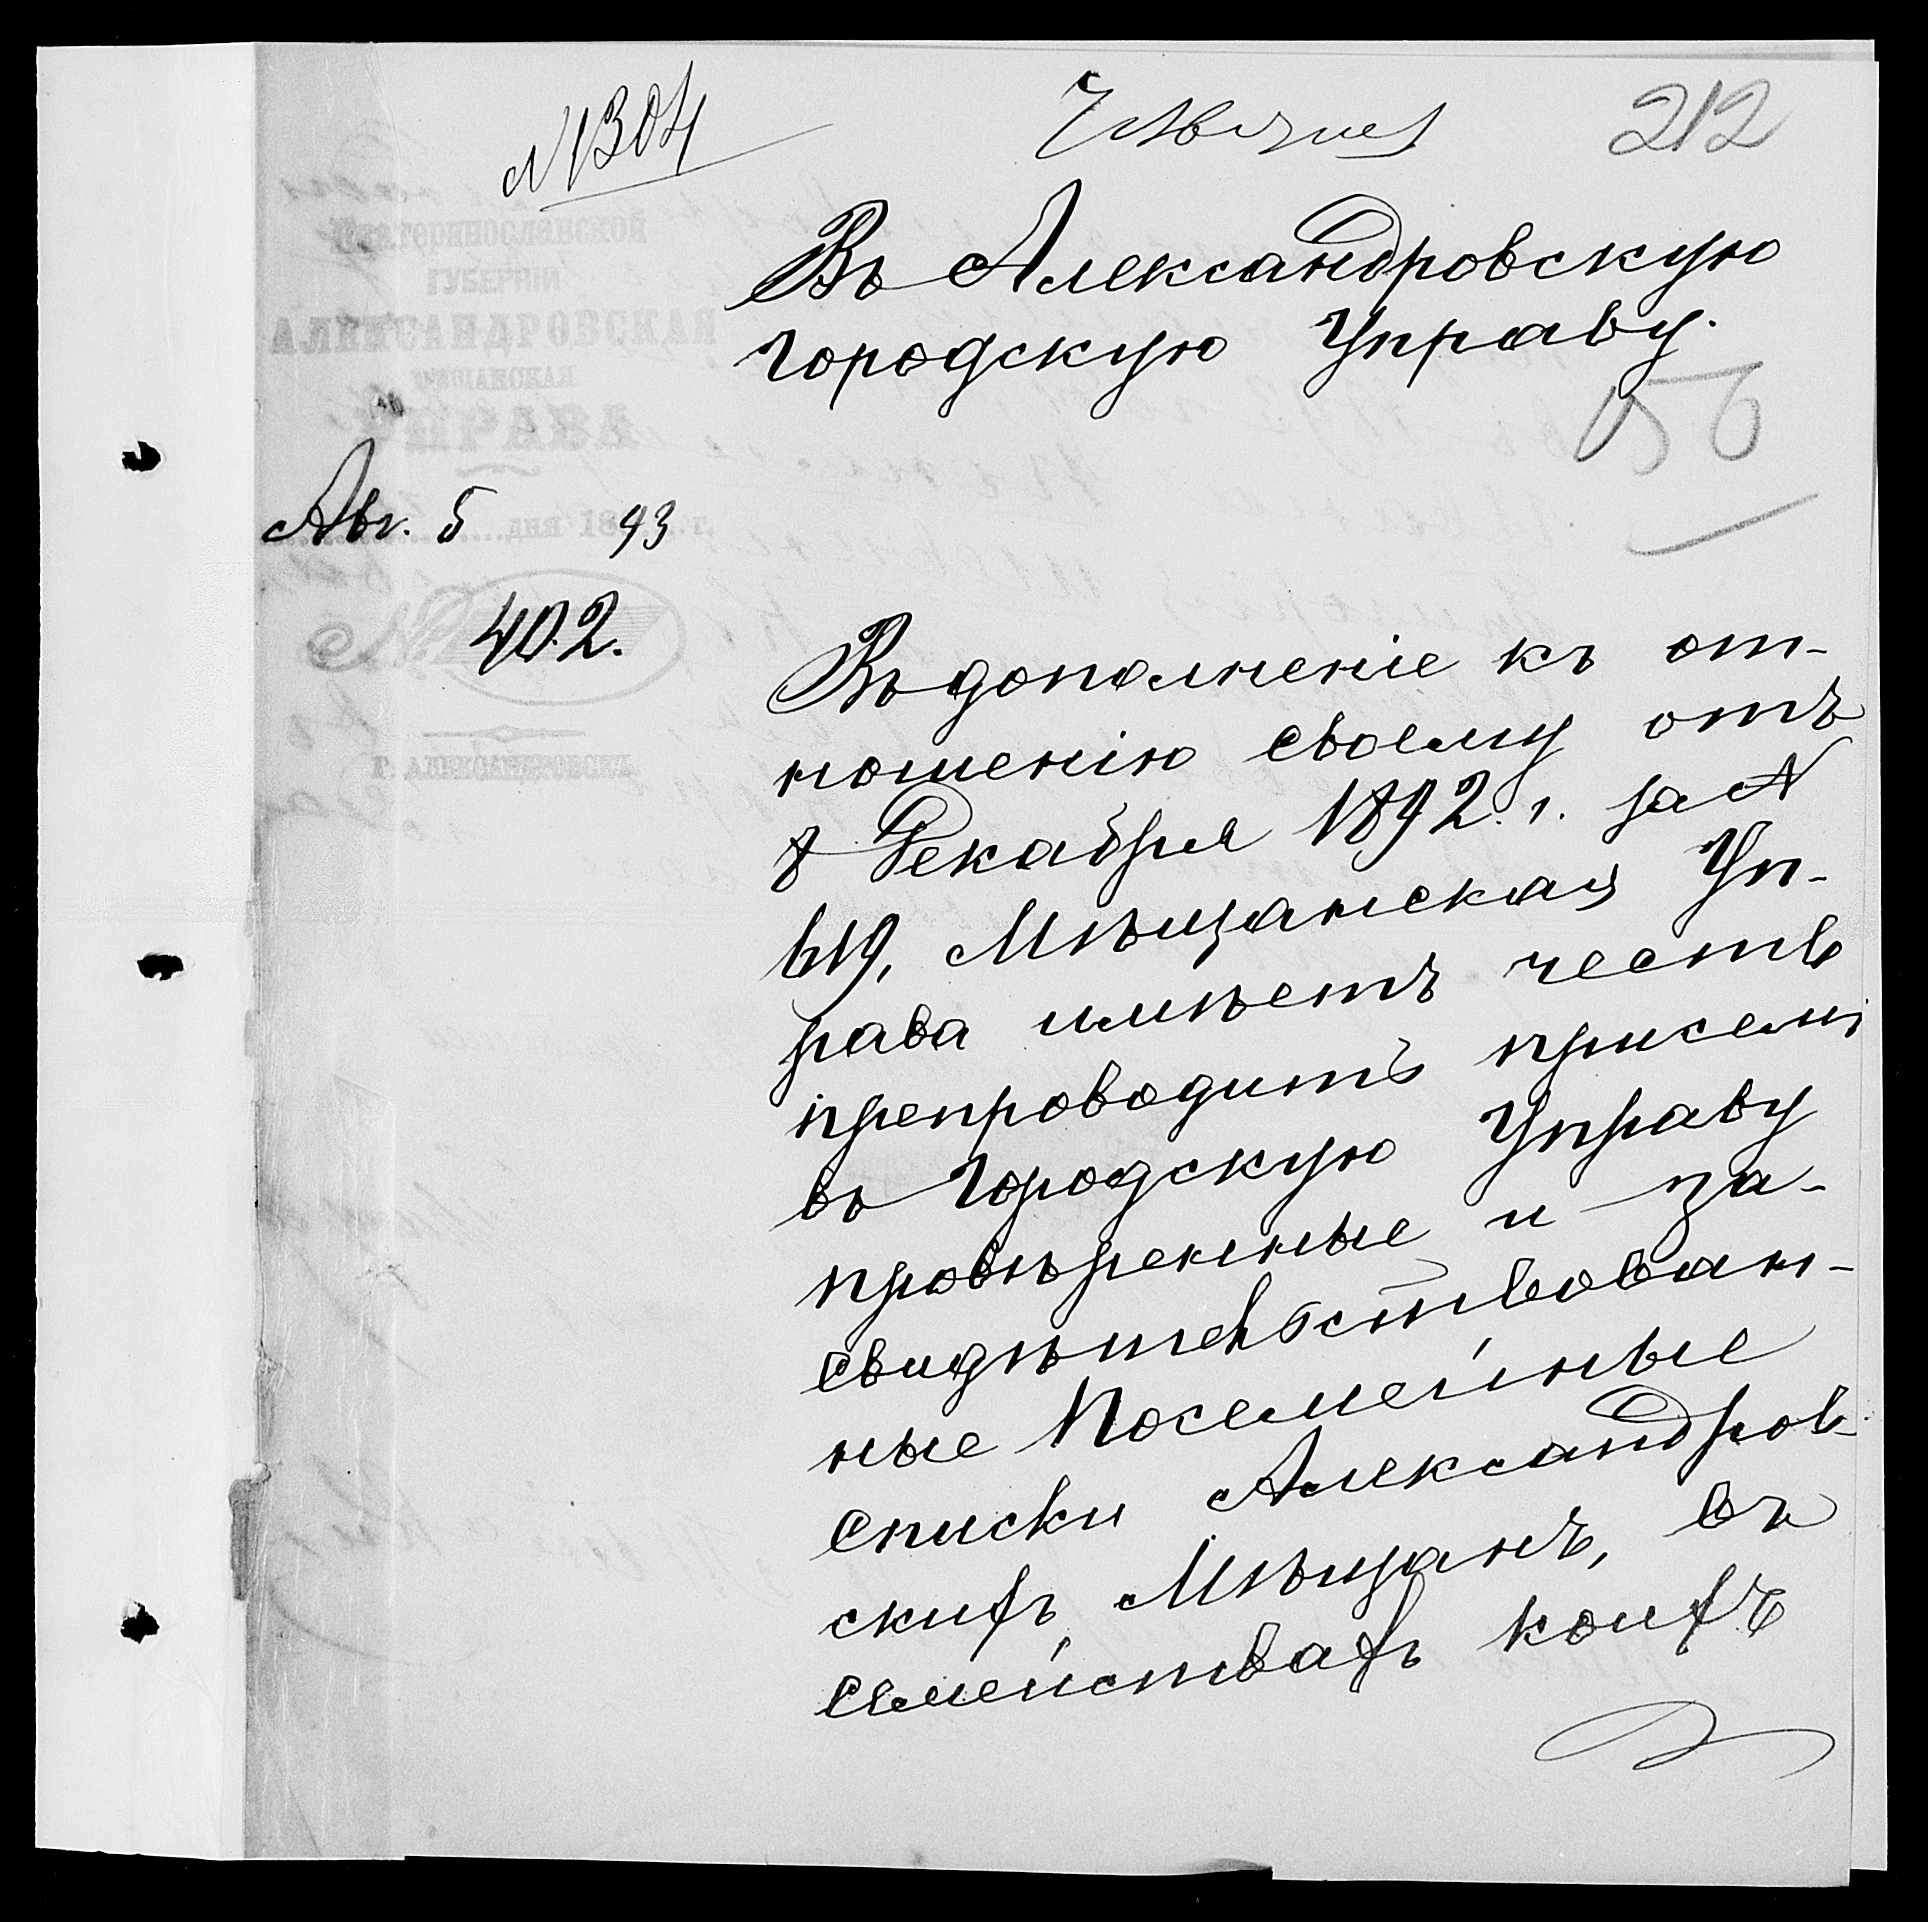 № 1304
7 Августа
212
Въ Александровскую
Городскую Управу.
Екатеринославской
ГУБЕРНІИ
АЛЕКСАНДРОВСКАЯ
МѢЩАНСКАЯ
УПРАВА
56
Авг. 5 дня 1893 г.
№ 402.
г. АЛЕКСАНДРОВСКЪ
Въ дополненіе къ от-
ношенію своему отъ
8 Декабря 1892 г. за №
619, Мѣщанская Уп-
рава имѣетъ честь
препроводить при семъ
въ Городскую Управу
провѣренные и за-
свидѣтельствован-
ные Посемейные
списки Александров-
скихъ Мѣщанъ, въ
семействахъ коихъ